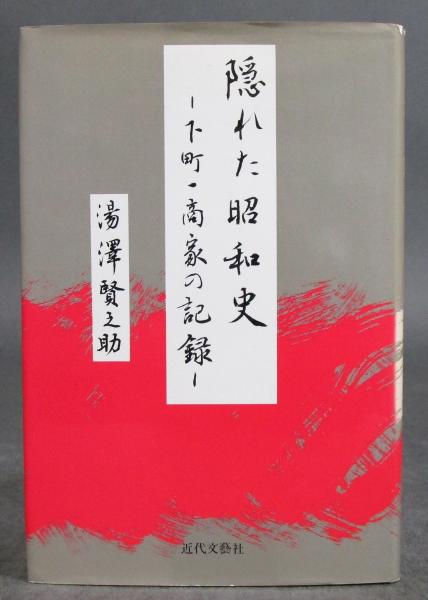 隠れた昭和史
-下町一商家の記録-
湯澤賢之助
近代文藝社